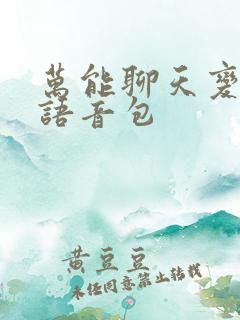 萬能聊天變
語音包
黄豆豆
未经同意禁止转载